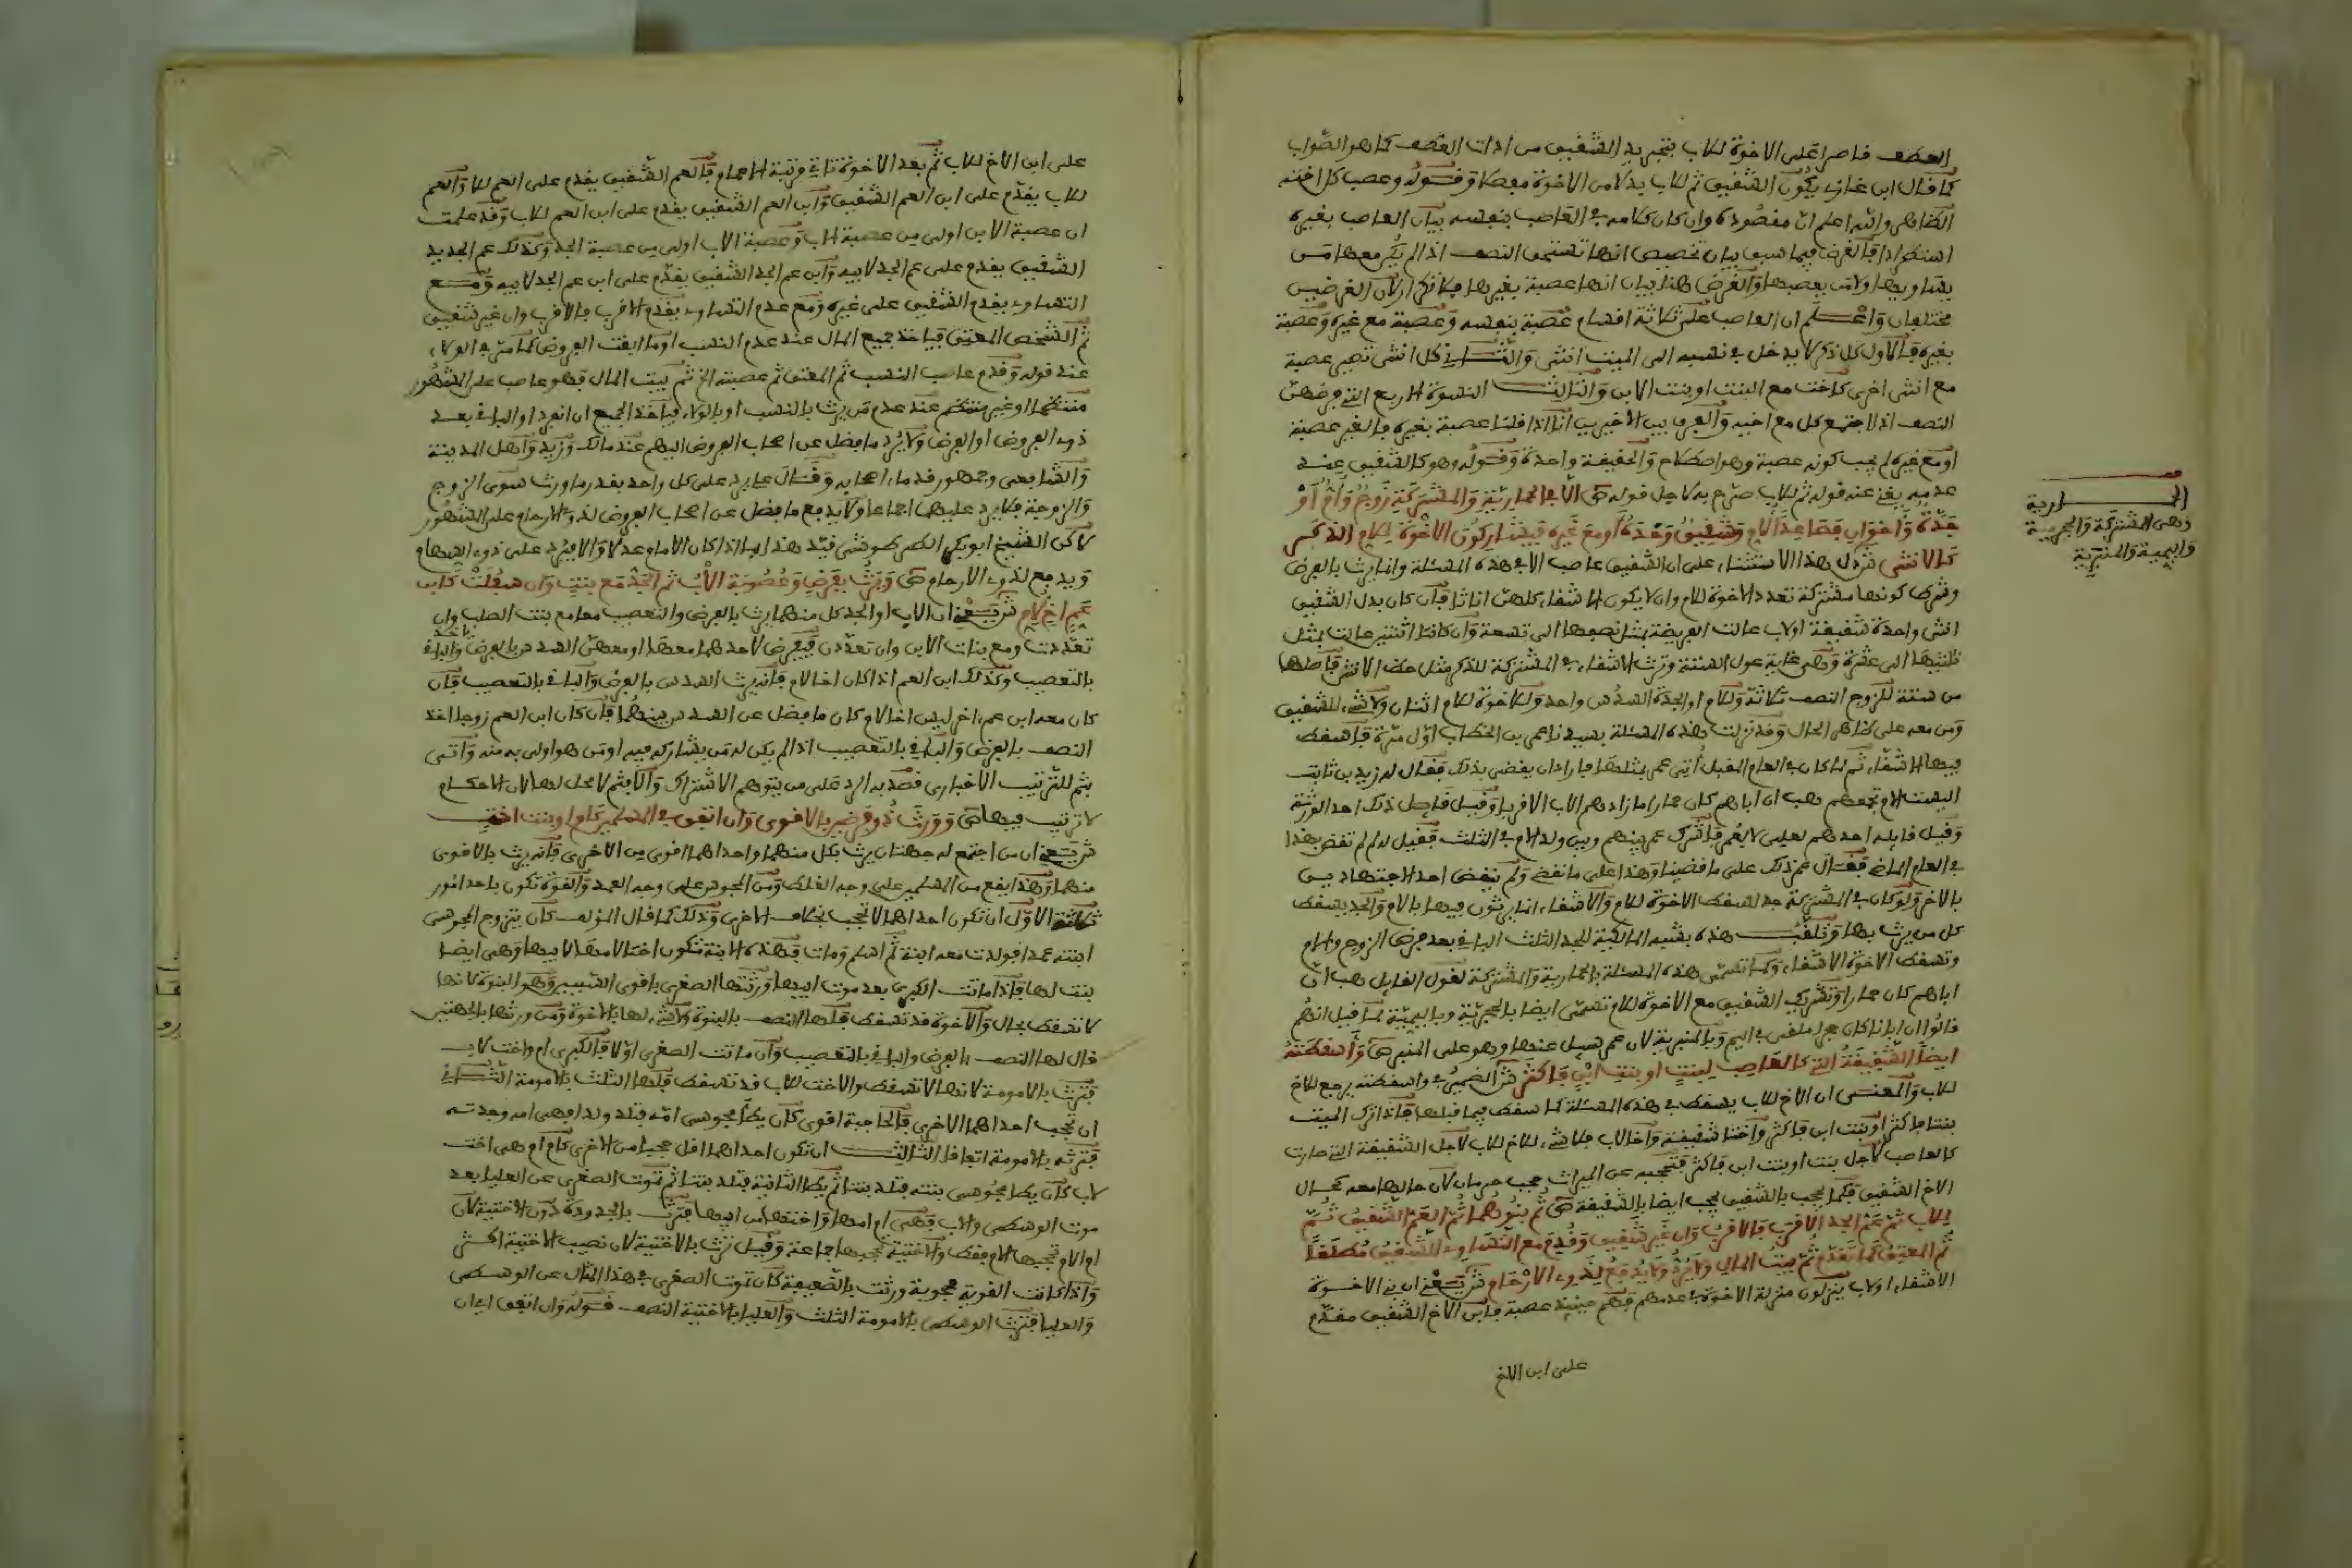 العطف قاصرا على الاخوة للاب بتجريد الشقيق من ادات العطف كما هو الصواب
كما قال ابن غازي يكون الشقيق ثم للاب بدلا من الاخوة مفصلا وقوله وعصب كل اخته
الظاهر والله اعلم ان مقصوده وان كان كلامه في العاصب بنفسه بيان العاصب بغيره
استطرادا فالغرض فيما سبق بيان تخصيص انها تستحق النصف اذا لم يكن معها من
يساويها ولا من يعصبها والغرض هنا بيان انها عصبة بغيرها فلا تكرار لان الغرضين
مختلفان واعلم ان العاصب على ثلاثة اقسام عصبة بنفسه وعصبة مع غيره وعصبة
بغيره فالاول كل ذكر لا يدخل في نسبه الى الميت انثى والثاني كل انثى تصير عصبة
مع انثى اخرى كاخت مع البنت او بنت الابن والثالث النسوة الاربع التي فرضهن
النصف اذا اجتمع كل مع اخيه والفرق بين الاخيرين انا اذا قلنا عصبة بغيره فالغير عصبة
او مع غيره لم يجب كونه عصبة وهو اصطلاح والحقيقة واحدة وقوله وهو كالشقيق عند
عدمه يغني عنه قوله ثم للاب صرح به لاجل قوله ص الا في الحمارية والمشتركة زوج وام او
جدة واخوان فصاعدا لام وشقيق وحده او مع غيره فيشاركون الاخوة للام الذكر
كالانثى ش دل بهذا الاستثناء على ان الشقيق عاصب الا في هذه المسئلة وانما يرث بالفرض
وشرط كونها مشتركة تعدد الاخوة للام وان لا يكون الاشقاء كلهن اناثا فان كان بدل الشقيق
انثى واحدة شقيقة او لاب عالت الفريضة بمثل نصفها الى تسعة وان كانتا اثنتين عالت بمثل
ثلثيها الى عشرة وهي غاية عول الستة وترث الاشقاء في المشتركة للذكر مثل حظ الانثى فاصلها
من ستة للزوج النصف ثلاثة وللام او الجدة السدس واحد وللاخوة للام اثنان ولا شيء للشقيق
ومن معه على ظاهر الحال وقد نزلت هذه المسئلة بسيدنا عمر بن الخطاب اول مرة فاسقط
فيها الاشقاء ثم لما كان في العام المقبل اتي عمر بمثلها فاراد ان يقضي بذلك فقال له زيد بن ثابت
اليست الام تجمعهم هب ان اباهم كان حمارا ما زادهم الاب الا قربا وقيل قائل ذلك احد الورثة
وقيل قابله احدهم لعلي لا لعمر فاشرك عمر بينهم وبين ولد الام في الثلث فقيل له لم لم تقض بهذا
في العام الماضي فقال عمر ذلك على ما قضينا وهذا على ما نقضي ولم ينقض احد الاجتهادين
بالاخر ولو كان في المشتركة جد لسقط الاخوة للام والاشقاء انما يرثون فيها بالام والجد يسقط
كل من يرث بها وتلقب هذه بشبه المالكية للجد الثلث الباقي بعد فرض الزوج والام
وتسقط الاخوة الاشقاء وكما تسمى هذه المسئلة بالحمارية والمشتركة لقول القايل هب ان
اباهم كان حمارا وتشريك الشقيق مع الاخوة للام تسمى ايضا بالحجرية وباليمية لما قيل انهم
قالوا ان ابانا كان حجرا ملقى في اليم وبالمنبرية لان عمر سيل عنها وهو على المنبر ص واسقطته
ايضا الشقيقة التي كالعاصب لبنت او بنت ابن فاكثر ش الضمير في واسقطته يرجع للاخ
للاب والمعنى ان الاخ للاب يسقط في هذه المسئلة كما سقط فيما قبلها فاذا ترك الميت
بنتا فاكثر او بنت ابن فاكثر واختا شقيقة واخا لاب فلا شيء للاخ للاب لاجل الشقيقة التي صارت
كالعاصب لاجل بنت او بنت ابن فاكثر فتحجبه عن الميراث حجب حرمان لان حالها معه كحال
الاخ الشقيق فكما يحجب بالشقيق يحجب ايضا بالشقيقة ص ثم بنوهما ثم العم الشقيق ثم
للاب ثم عم الجد الاقرب فالاقرب وان غير شقيق وقدم مع التساوي الشقيق مطلقا
ثم المعتق كما تقدم ثم بيت المال ولا يرد ولا يدفع لذوي الارحام ش يعني ان بني الاخوة
الاشقاء او لاب ينزلون منزلة الاخوة في عدمهم فهم حينيذ عصبة فابن الاخ الشقيق مقدم
على ابن الاخ
الحمارية
وهي المشتركة والحجرية
واليمية والمنبرية
على ابن الاخ للاب ثم بعد الاخوة تاتي مرتبة الاعمام فالعم الشقيق يقدم على العم للاب والعم
للاب يقدم على ابن العم الشقيق وابن العم الشقيق يقدم على ابن العم للاب وقد علمت
ان عصبة الابن اولى من عصبة الاب وعصبة الاب اولى من عصبة الجد وكذلك عم الجد يد
الشقيق يقدم على عم الجد لابيه وابن عم الجد الشقيق يقدم على ابن عم الجد لابيه ومع
التساوي يقدم الشقيق على غيره ومع عدم التساوي يقدم الاقرب فالاقرب وان غير شقيق
ثم الشخص المعتق فياخذ جميع المال عند عدم النسب او ما ابقت الفروض كما مر في الولاء
عند قوله وقدم عاصب النسب ثم المعتق ثم عصبته الخ ثم بيت المال فهو عاصب على المشهور
منتظما او غير منتظم عند عدم من يرث بالنسب او بالولاء فياخذ الجميع ان انفرد او الباقي بعد
ذوي الفروض او الفرض ولا يرد ما فضل عن اصحاب الفروض اليهم عند مالك وزيد واهل المدينة
والشافعي وجمهور قدماء اصحابه وقال علي يرد على كل واحد بقدر ما ورث سوى الزوج
والزوجة فلا يرد عليهما اجماعا ولا يدفع ما فضل عن اصحاب الفروض لذوي الارحام على المشهور
لاكن الشيخ ابو بكر الطرطوشي قيد هذا بما اذا كان الامام عدلا والا فيرد على ذوي السهام
ويدفع لذوي الارحام ص ويرث بفرض وعصوبة الاب ثم الجد مع بنت وان سفلت كابن
عم اخ لام ش يعني ان الاب او الجد كل منهما يرث بالفرض والتعصيب معا مع بنت الصلب وان
تعددت ومع بنات الابن وان تعددن فيفرض لاحدهما معها او معهن السدس بالفرض وياخذ الباقي
بالتعصيب وكذلك ابن العم اذا كان اخا لام فانه يرث السدس بالفرض والباقي بالتعصيب فان
كان معه ابن عم اخر ليس اخا لام كان ما فضل عن السدس بينهما فان كان ابن العم زوجا اخذ
النصف بالفرض والباقي بالتعصيب اذا لم يكن له من يشاركه فيه او من هو اولى به منه واتى
بثم للترتيب الاخباري قصد به الرد على من يتوهم الاشتراك والا فثم لا محل لها لان الاحكام
لا ترتيب فيها ص وورث ذو فرضين بالاقوى وان اتفق في المسلمين كام او بنت اخت
ش يعني ان من اجتمع له جهتان يرث بكل منهما واحداهما اقوى من الاخرى فانه يرث بالاقوى
منهما وهذا يقع من المسلمين على وجه الغلط ومن المجوس على وجه العمد والقوة تكون باحد امور
ثلاثة الاول ان تكون احداهما لا تحجب بخلاف الاخرى وذلك كما قال المؤلف كان يتزوج المجوسي
ابنته عمدا فولدت معه ابنة ثم اسلم ومات فهذه الابنة تكون اختا لامها لابيها وهي ايضا
بنت لها فاذا ماتت الكبرى بعد موت ابيها ورثتها الصغرى باقوى السببين وهو البنوة لانها
لا تسقط بحال والاخوة قد تسقط فلها النصف بالبنوة ولا شيء لها بالاخوة ومن ورثها بالجهتين
قال لها النصف بالفرض والباقي بالتعصيب وان ماتت الصغرى اولا فالكبرى ام واخت لاب
فترث بالامومة لانها لا تسقط والاخت للاب قد تسقط فلها الثلث بالامومة الثاني
ان تحجب احداهما الاخرى فالحاجبة اقوى كان يطا مجوسي امه فتلد ولدا فهي امه وجدته
فترثه بالامومة اتفاقا الثالث ان تكون احداهما اقل حجبا من الاخرى كام ام هي اخت
لاب كان يطا مجوسي بنته فتلد بنتا ثم يطا الثانية فتلد بنتا ثم تموت الصغرى عن العليا بعد
موت الوسطى والاب فهي ام امها واختها من ابيها فترث بالجدودة دون الاختية لان
ام الام تحجبها الام فقط والاختية يحجبها جماعة وقيل ترث بالاختية لان نصيب الاختية اكثر
واذا كانت القوية محجوبة ورثت بالضعيفة كان تموت الصغرى في هذا المثال عن الوسطى
والعليا فترث الوسطى بالامومة الثلث والعليا بالاختية النصف قوله وان اتفق اي ان